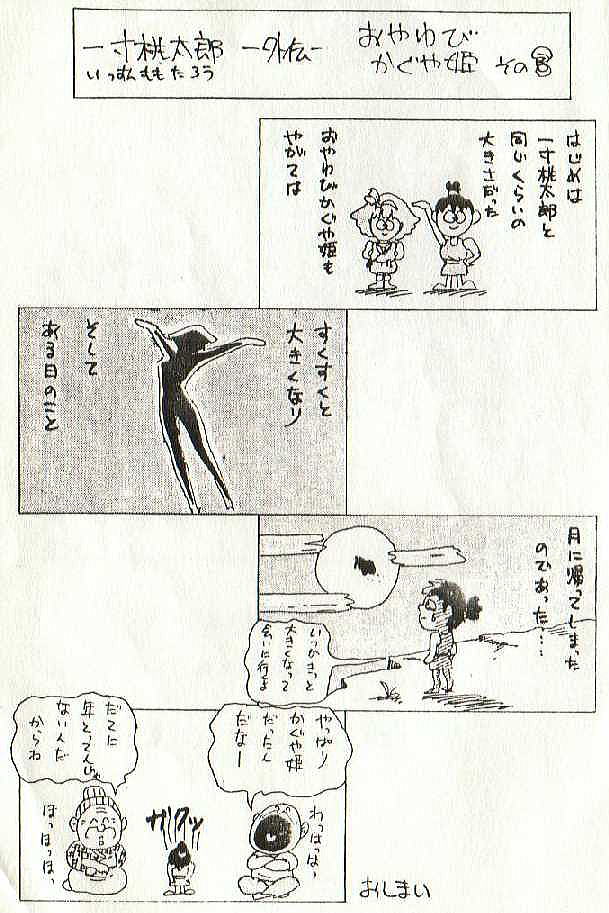 一寸桃太郎 ー外伝ー
いっすんももたろう
おやゆび
かぐや姫 その
はじめは
一寸桃太郎と
同じくらいの
大きさだった
おやゆびかぐや姫も
やがては
すくすくと
大きくなり
そして
ある日のこと
月に帰ってしまった
のであった・・・・
いつかきっと
大きくなって
会いに行くよ
やっぱり
かぐや姫
だったん
だなー
わっはっはっ
ガクッ
だてに
年とってんじゃ
ないんだ
からね
ほっほっほっ
おしまい